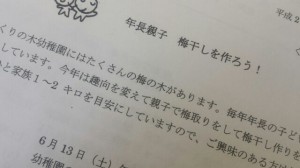 平成2
年長親子 梅干しを作ろう！
くりの木幼稚園にはたくさんの梅の木があります。毎年年長の子ど
しています。今年は趣向を変えて親子で梅取りをして梅干し作りを
と家族1～2 キロを目安にしていますので、ご興味のある方は
6月13日（土）午
幼稚園